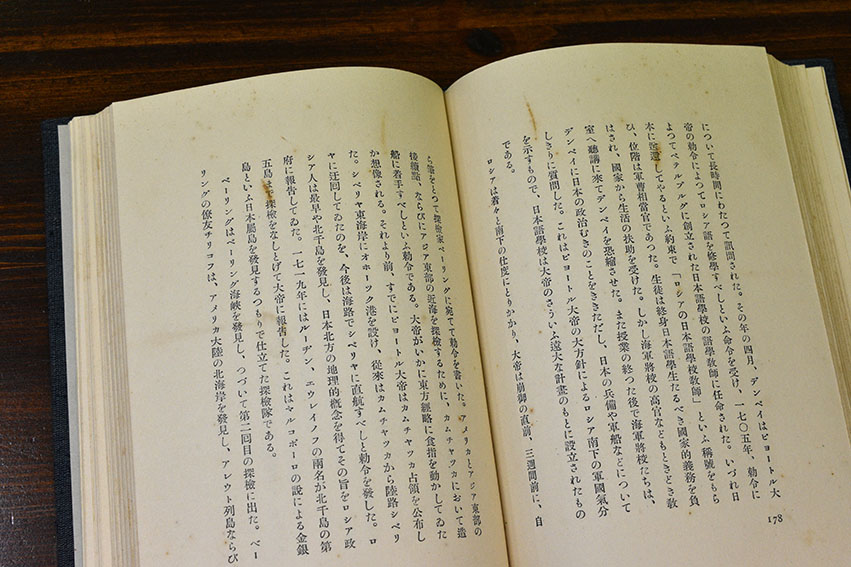 について長時間にわたつて訊問された。その年の四月、デンベイはピヨートル大
帝の勅令によつてロシア語を修學すべしといふ命令を受け、一七〇五年、勅令に
よつてペテルブルグに創立された日本語學校の語學敎師に任命された。いづれ日
本に送還してやるといふ約束で「ロシアの日本語學校敎師」といふ稱號をもら
ひ、位階は軍曹相當官であつた。生徒は終身日本語學生たるべき國家的義務を負
はされ、國家から生活の扶助を受けた。しかし海軍將校の高官などもときどき敎
室へ聽講に來てデンベイを恐縮させた。また授業の終つた後で海軍將校たちは、
デンベイに日本の政治むきのことをききただし、日本の兵備や軍船などについて
しきりに質問した。これはピヨートル大帝の大方針によるロシア南下の軍國氣分
を示すもので、日本語學校は大帝のさういふ遠大な計畫のもとに設立されたもの
である。
ロシアは着々と南下の仕度にとりかかり、大帝は崩御の直前、三週間前に、自
178
ら筆をとつて探檢家ベーリングに宛てて勅令を書いた。アメリカとアジア東部の
接續點、ならびにアジア東部の近海を探檢するために、カムチャツカにおいて造
船に着手すべしといふ勅令である。大帝がいかに東方經略に食指を動かしてゐた
か想像される。それより前、すでにピヨートル大帝はカムチャツカ占領を公布し
た。シベリヤ東海岸にオホーツク港を設け、從來はカムチャツカから陸路シベリ
ヤに迂回してゐたのを、今後は海路でシベリヤに直航すべしと勅令を發した。ロ
シア人は最早や北千島を發見し、日本北方の地理的概念を得てその旨をロシア政
府に報告してゐた。一七一九年にはルージン、エウレイノフの兩名が北千島の第
五島まで探檢をなしとげて大帝に報告した。これはマルコポーロの說による金銀
島といふ日本屬島を發見するつもりで仕立てた探檢隊である。
ベーリングはベーリング海峽を發見し、つづいて第二回目の探檢に出た。ベー
リングの僚友チリコフは、アメリカ大陸の北海岸を發見し、アレウト列島ならび